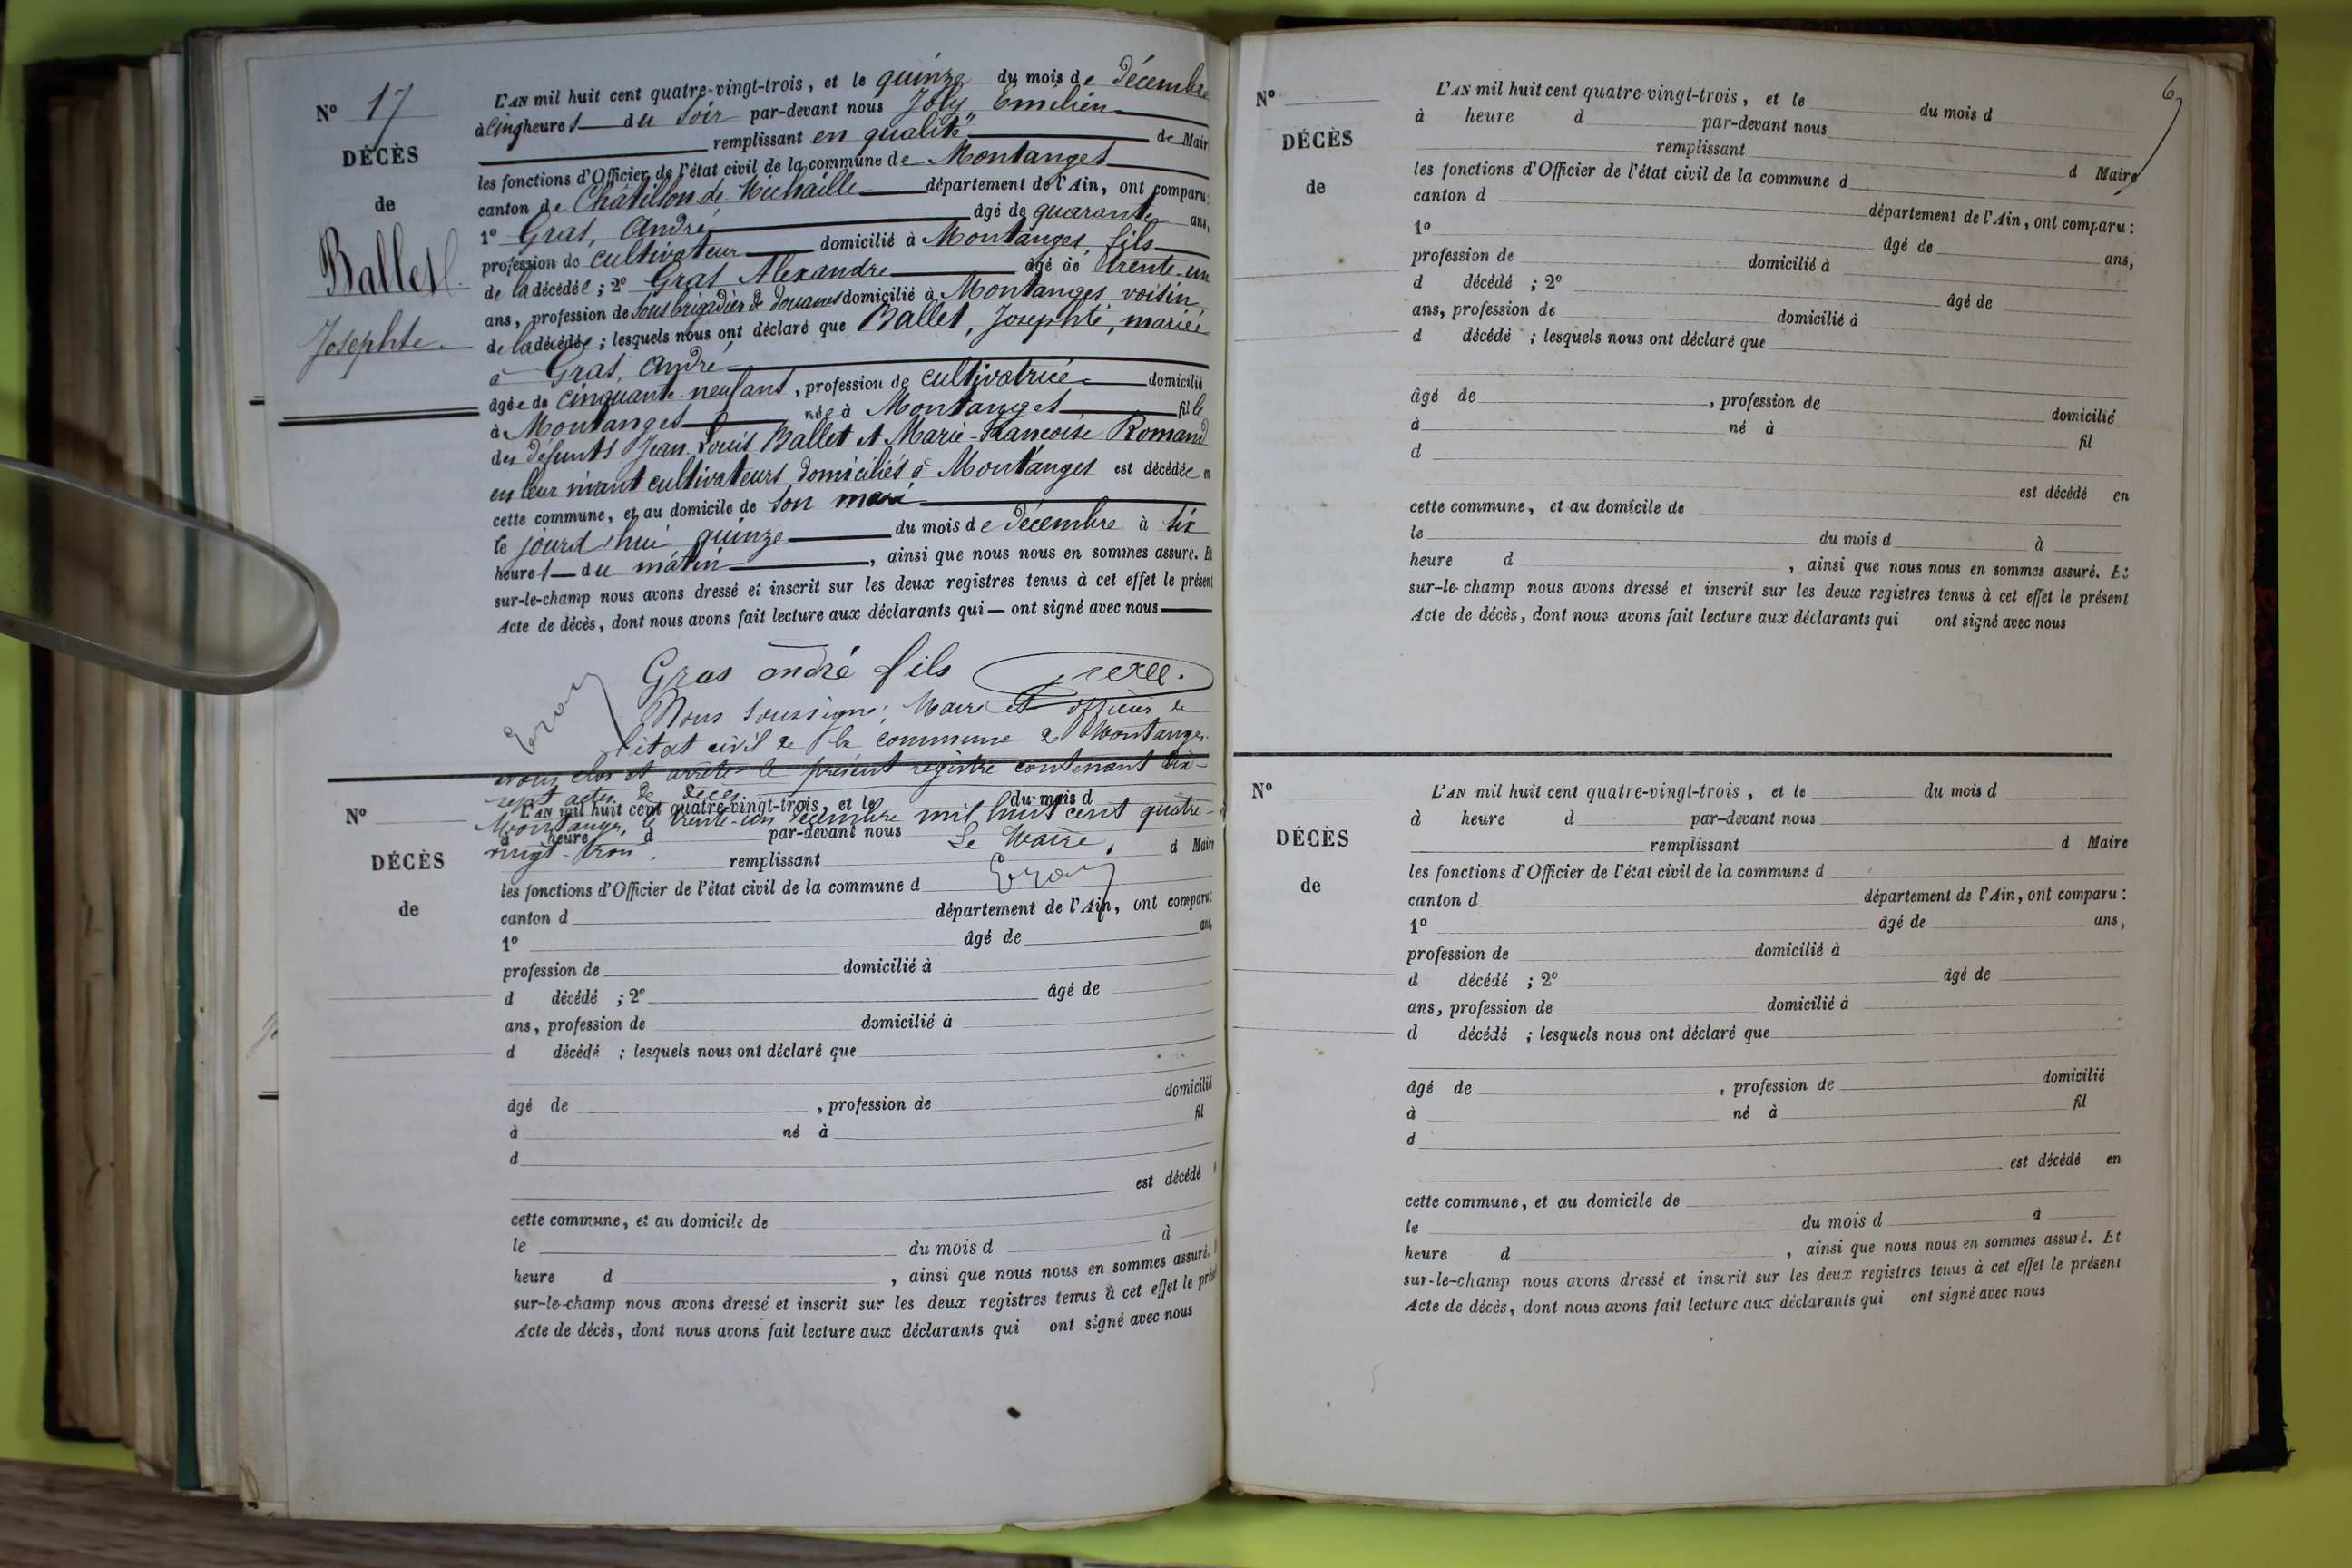 N° 17
DÉCÈS
de
Ballet
Josephte
L'AN mil huit cent quatre-vingt-trois, et le quinze du mois de Décembre
à cinq heures du soir par-devant nous Joly, Emilien
remplissant en qualité de Mair
les fonctions d'Officier de l'état civil de la commune de Montanges
canton de Châtillon de Michaille département de l'Ain, ont comparu:
1° Gras, André âgé de quarante ans,
profession de cultivateur domicilié à Montanges, fils
de la décédée; 2° Gras Alexandre âgé de trente-un
ans, profession de sous brigadier de douanes domicilié à Montanges, voisin
de la décédée; lesquels nous ont déclaré que Ballet, Josephte, mariée
à Gras, André
âgée de cinquante-neuf ans, profession de cultivatrice domicilié
à Montanges née à Montanges fille
des défunts Jean-Louis Ballet et Marie-Françoise Romand
en leur vivant cultivateurs domiciliés à Montanges est décédée en
cette commune, et au domicile de son mari
le jourd'hui quinze du mois de Décembre à six
heures du matin, ainsi que nous nous en sommes assuré. Et
sur-le-champ nous avons dressé et inscrit sur les deux registres tenus à cet effet le présent
Acte de décès, dont nous avons fait lecture aux déclarants qui — ont signé avec nous
Gras andré fils
Nous soussigné, Maire et officier de
l'état civil de la commune de Montanges
avons clos et arrêté le présent registre contenant dix-
sept actes de décès
Montanges, le trente-un décembre mil huit cent quatre-
vingt-trois.
Le Maire,
N°
DÉCÈS
de
L'AN mil huit cent quatre-vingt-trois, et le du mois d
à heure d par-devant nous
remplissant d Maire
les fonctions d'Officier de l'état civil de la commune d
canton d département de l'Ain, ont comparu:
1° âgé de ans,
profession de domicilié à
d décédé ; 2° âgé de
ans, profession de domicilié à
d décédé ; lesquels nous ont déclaré que
âgé de , profession de domicilié
à né à fil
d
est décédé
cette commune, et au domicile de
le du mois d à
heure d , ainsi que nous nous en sommes assuré.
sur-le-champ nous avons dressé et inscrit sur les deux registres tenus à cet effet le prése
Acte de décès, dont nous avons fait lecture aux déclarants qui ont signé avec nous
6
N°
DÉCÈS
de
L'AN mil huit cent quatre-vingt-trois, et le du mois d
à heure d par-devant nous
remplissant d Maire
les fonctions d'Officier de l'état civil de la commune d
canton d département de l'Ain, ont comparu :
1° âgé de ans,
profession de domicilié à
d décédé ; 2° âgé de
ans, profession de domicilié à
d décédé ; lesquels nous ont déclaré que
âgé de , profession de domicilié
à né à fil
d
est décédé en
cette commune, et au domicile de
le du mois d à
heure d , ainsi que nous nous en sommes assuré. Et
sur-le-champ nous avons dressé et inscrit sur les deux registres tenus à cet effet le présent
Acte de décès, dont nous avons fait lecture aux déclarants qui ont signé avec nous
N°
DÉCÈS
de
L'AN mil huit cent quatre-vingt-trois, et le du mois d
à heure d par-devant nous
remplissant d Maire
les fonctions d'Officier de l'état civil de la commune d
canton d département de l'Ain, ont comparu :
1° âgé de ans,
profession de domicilié à
d décédé ; 2° âgé de
ans, profession de domicilié à
d décédé ; lesquels nous ont déclaré que
âgé de , profession de domicilié
à né à fil
d
est décédé en
cette commune, et au domicile de
le du mois d à
heure d , ainsi que nous nous en sommes assuré. Et
sur-le-champ nous avons dressé et inscrit sur les deux registres tenus à cet effet le présent
Acte de décès, dont nous avons fait lecture aux déclarants qui ont signé avec nous